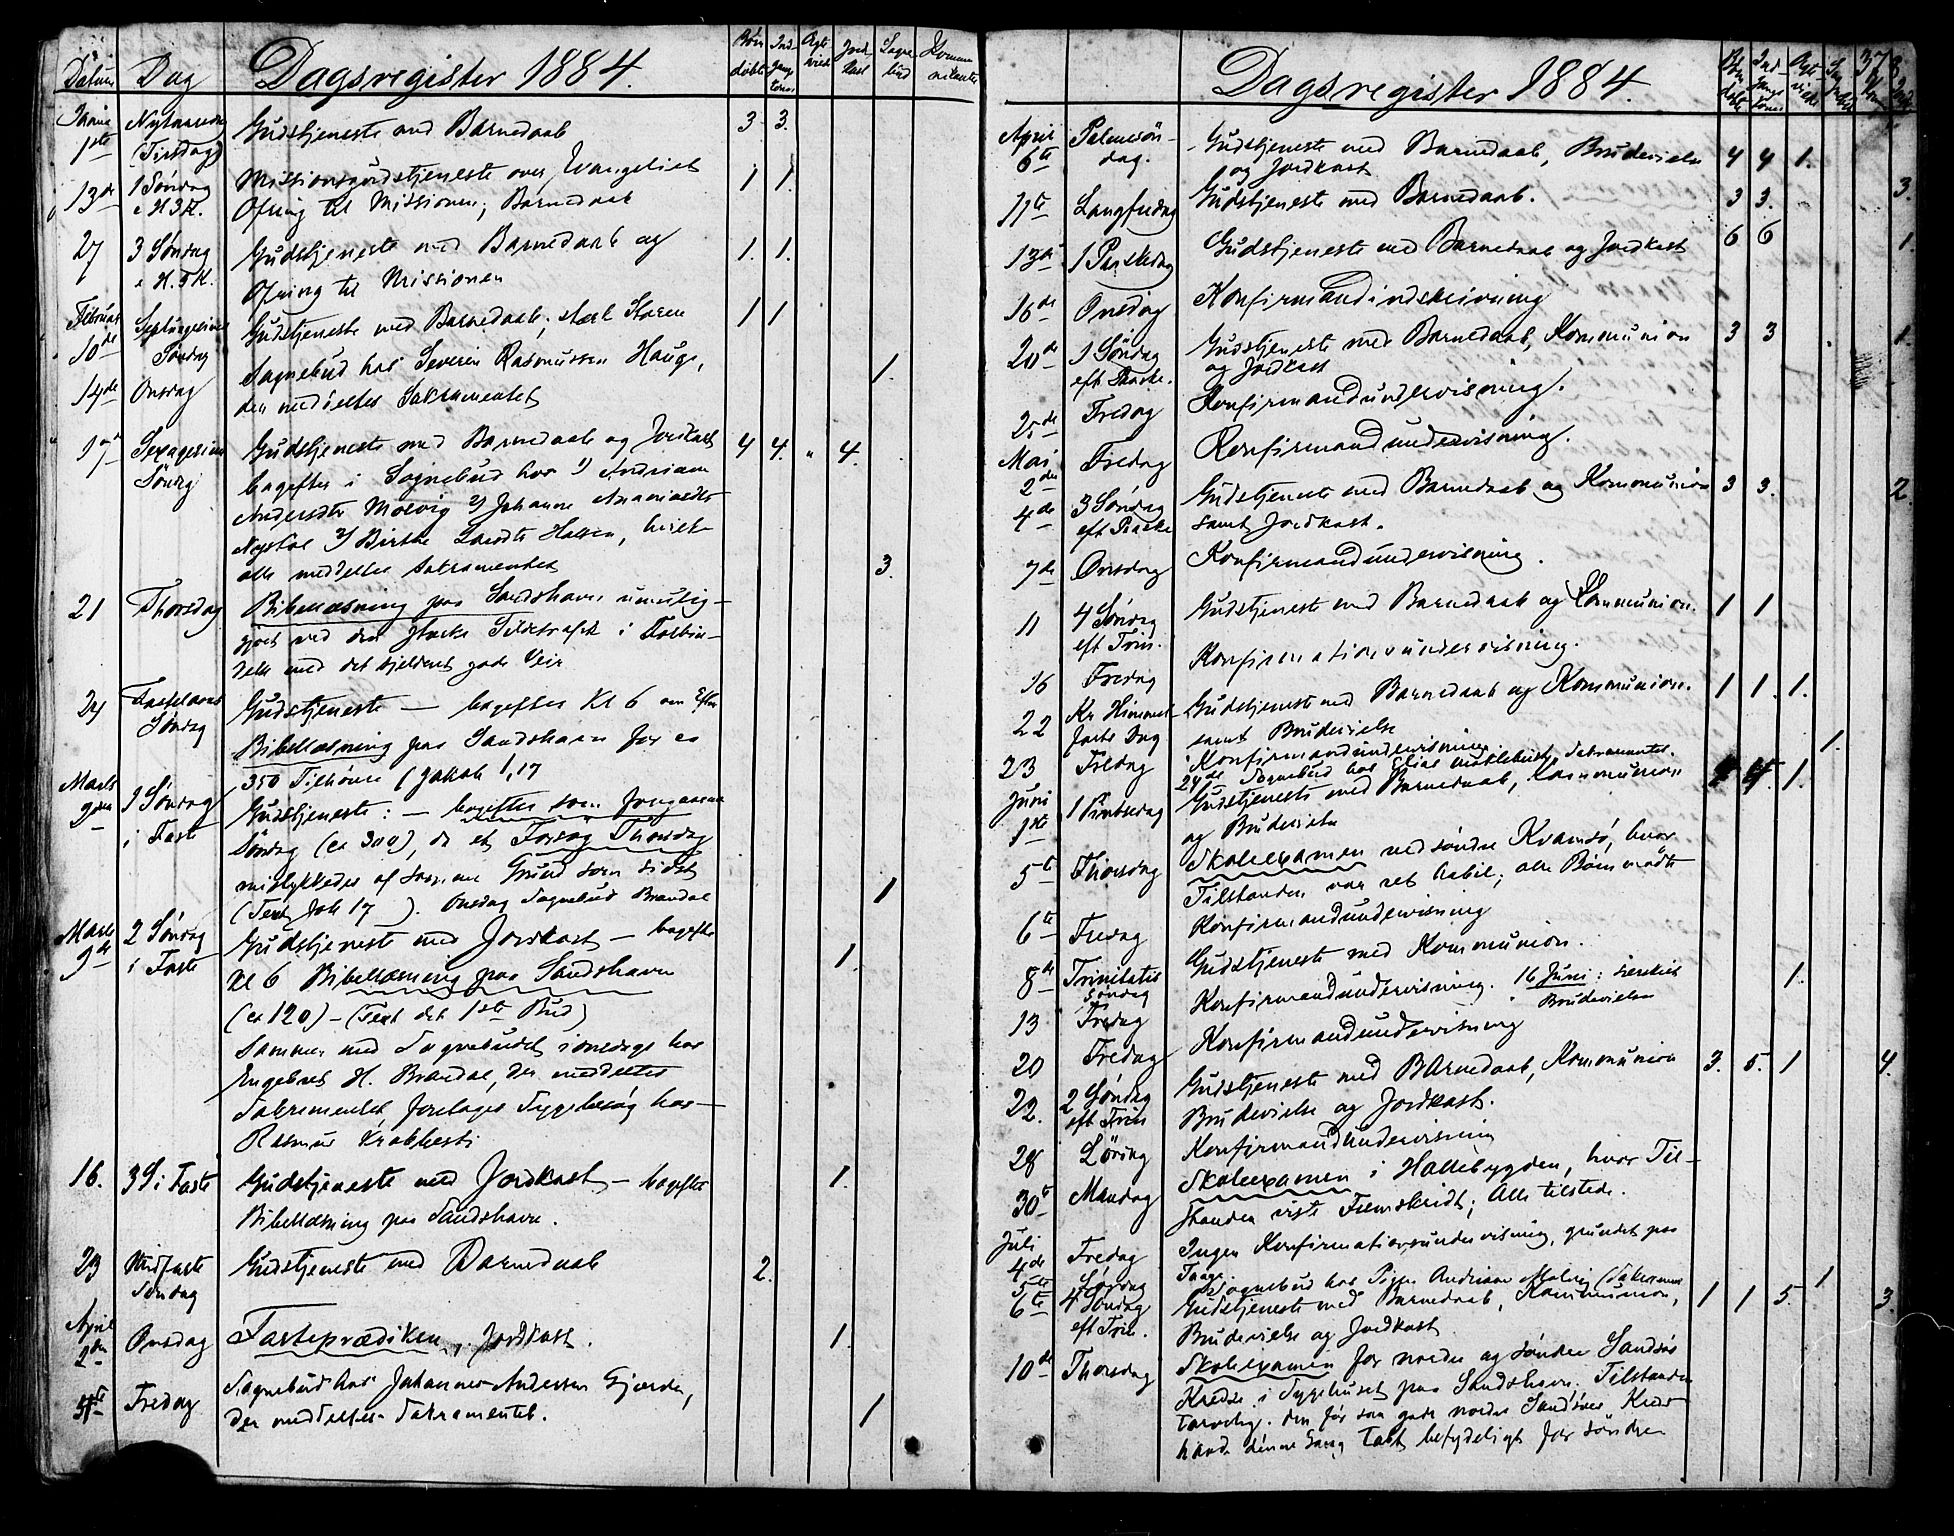 Datum Dag Dagsregister 1884. Børn døbte Jord kast Sogne bud
1ste Nytaarsdag (Tirsdag) Gudstjeneste med Barnedaab 3 3.
13de 1 Søndag e. H.3.K. Missionsgudstjeneste over Evangeliet 1 1.
Ofring til Missionen; Barnedaab
27 3 Søndag e. H.3.K. Gudstjeneste med Barnedaab og 1. 1.
Ofring til Missionen
Februar 10de Søndag Gudstjeneste med Barnedaab; stærk Storm 1 1
Onsdag Sognebud hos Severin Rasmussen Hauge, 1.
den meddeltes Sakramentet
17de Søndag Gudstjeneste med Barnedaab og Jordkast 4 4. " 4.
bagefter i Sognebud hos 1)
Andersdtr Molvig 2) Johanne
3) Larsdtr
alle meddeltes Sakramentet 3.
21 Thorsdag Bibellæsning paa Sandshavn umulig-
gjort ved den stærke i Forbin-
delse med det gode Veir
24 Fastelavns Søndag Gudstjeneste — bagefter Kl 6 om Efter
Bibellæsning paa Sandshavn for ca
350 Tilhørere (Jakob 1,17
Marts 2den 1 Søndag i Faste Gudstjeneste: — bagefter som forgaaende
Søndag (ca 300), da et Forsøg Thorsdag
mislykkedes af samme Grund som sidst
(Text Joh 17 ). Onsdag Sognebud Brandal 1
Marts 9de 2 Søndag i Faste Gudstjeneste med Jordkast — bagefter 1.
Kl 6 Bibellæsning paa Sandshavn
(ca 120) — (Text det 1ste Bud)
Sammen med Sognebudet hos
H. Brandal, der meddeltes
Sakramentet, foretages Sygebesøg hos
Rasmus
16. 3 S. i Faste Gudstjeneste med Jordkast — bagefter 1.
Bibellæsning paa Sandshavn.
23 Midfaste Søndag Gudstjeneste med Barnedaab 2.
April 2den Onsdag Fasteprædiken, Jordkast. 1.
Fredag Sognebud hos Johannes Andersen
der meddeltes Sakramentet. 1
Dagsregister 1884. 378
April 6te Palmesøn-dag. Gudstjeneste med Barnedaab, Brudevielse 4 4 1.
og Jordkast
11te Langfredag Gudstjeneste med Barnedaab. 3 3. 3.
13de 1 Paaskedag Gudstjeneste med Barnedaab og Jordkast 6 6 1.
16de Onsdag Konfirmandindskrivning
20de 1 Søndag eft Paaske. Gudstjeneste med Barnedaab, Kommunion 3 3 1.
og Jordkast
25de Fredag Konfirmandundervisning.
Mai 2den Fredag Konfirmandundervisning.
4de 3 Søndag eft Paaske Gudstjeneste med Barnedaab og Kommunion 3 3. 2.
samt Jordkast.
7de Onsdag Konfirmandundervisning.
11 4 Søndag eft Trin. Gudstjeneste med Barnedaab og Kommunion. 1 1
16 Fredag Konfirmationsundervisning.
22 Kr Himmel-farts Dag Gudstjeneste med Barnedaab og Kommunion. 1 1. 1.
samt Brudevielse
23 Fredag Konfirmandundervisning
24de Sognebud hos Elias Sakramentet. 1.
Juni 1ste 1 Pintsedag Gudstjeneste med Barnedaab, Kommunion 4. 1.
og Brudevielse
5te Thorsdag Skoleexamen ved søndre Kvamsø, hvor
Tilstanden var ret habil; alle Børn mødte
6te Fredag Konfirmandundervisning
8de Trinitatis Søndag Gudstjeneste med Kommunion.
13 Fredag Konfirmandundervisning. 16 Juni: særskilt Brudevielse 1.
20 Fredag Konfirmandundervisning
22. 2 Søndag eft Trin Gudstjeneste med Barnedaab, Kommunion 3. 5. 1 4.
Brudevielse og Jordkast.
28 Lørdag Konfirmandundervisning
30te Mandag Skoleexamen i Hallebygden, hvor Til-
standen viste Fremskridt; Alle tilstede.
Juli 4de Fredag Ingen Konfirmationsundervisning, grundet paa
Taage.
5te Lørdag Sognebud hos Pigen Andrine Molvig (Sakrament 1
6te 4 Søndag eft Trin. Gudstjeneste med Barnedaab, Kommunion, 1 1 5. 3.
Brudevielse og Jordkast
10de Thorsdag Skoleexamen for nordre og søndre Sandsø
Kredse i Sygehuset paa Sandshavn. Tilstanden
tarvelig. den før saa gode nordre Sandsøes Kreds
havde denne Gang tabt betydeligt for søndre